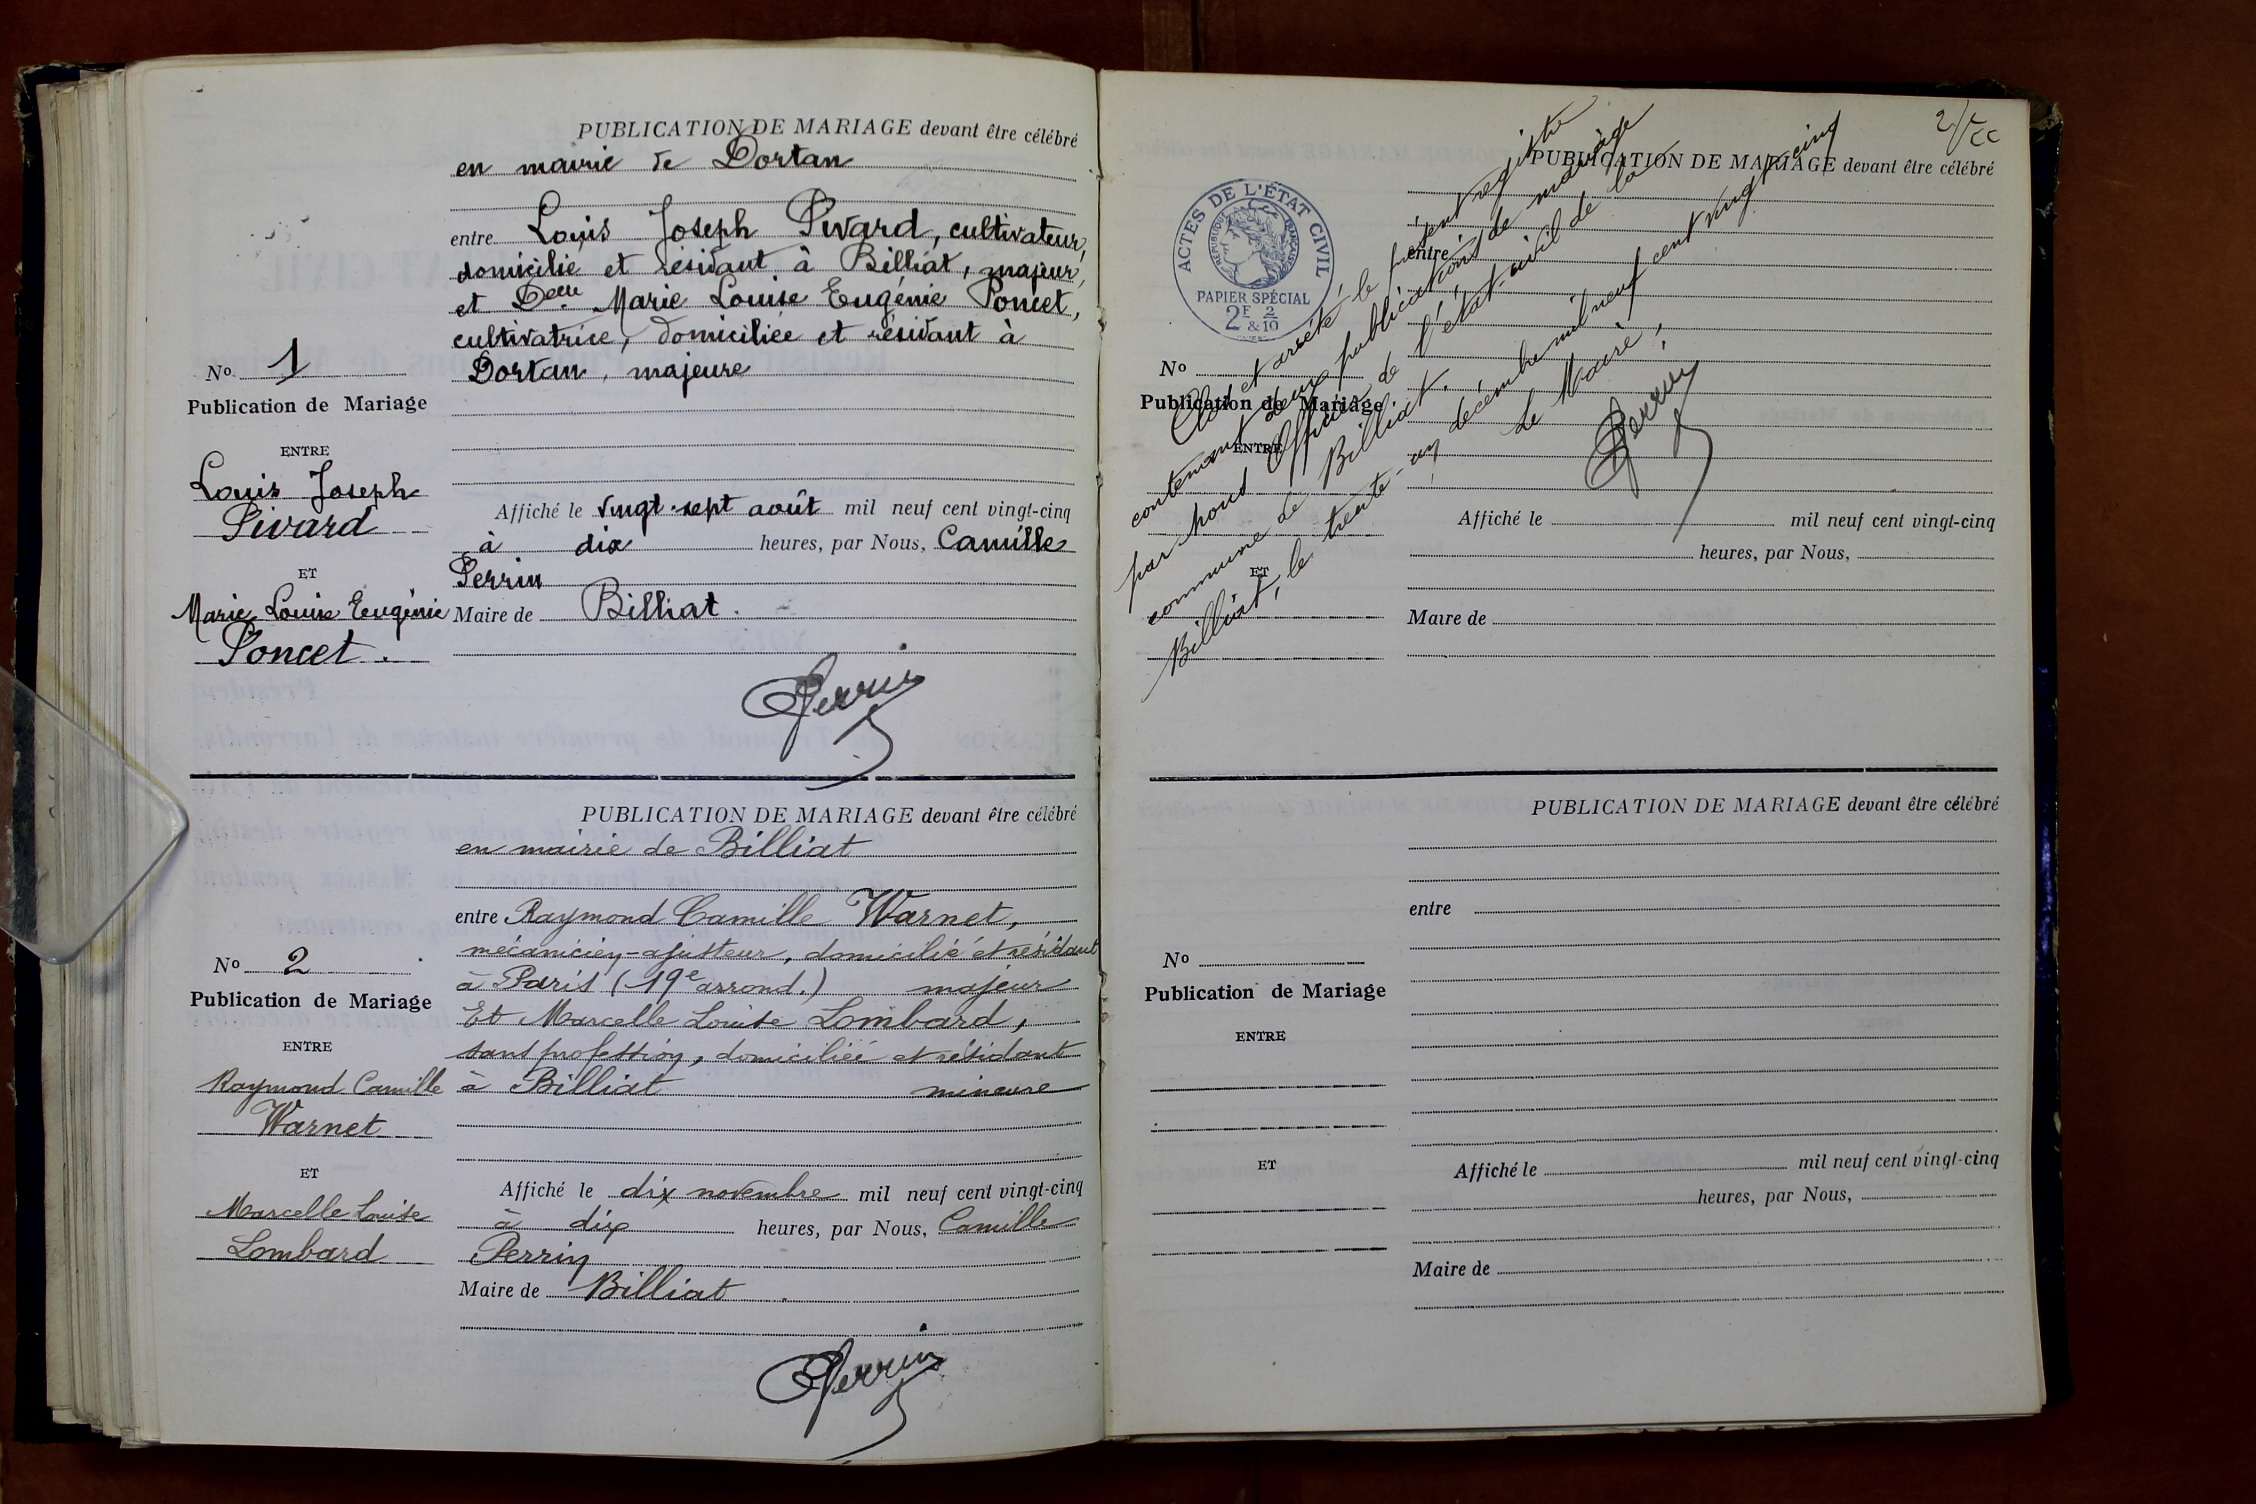 PUBLICATION DE MARIAGE devant être célébré
en mairie de Dortan
entre Louis Joseph Pivard, cultivateur,
domicilié et résidant à Billiat, majeur,
et Delle Marie Louise Eugénie Poncet,
cultivatrice, domiciliée et résidant à
Dortan, majeure
No 1
Publication de Mariage
ENTRE
Louis Joseph
Pivard
ET
Marie Louise Eugénie
Poncet.
Affiché le vingt-sept août mil neuf cent vingt-cinq
à dix heures, par Nous, Camille
Perrin
Maire de Billiat.
CPerrin
PUBLICATION DE MARIAGE devant être célébré
en mairie de Billiat
entre Raymond Camille Warnet,
mécanicien-ajusteur, domicilié et résidant
à Paris (19e arrond.) majeur
Et Marcelle Louise Lombard,
sans profession, domiciliée et résidant
à Billiat mineure
No 2
Publication de Mariage
ENTRE
Raymond Camille
Warnet
ET
Marcelle Louise
Lombard
Affiché le dix novembre mil neuf cent vingt-cinq
à dix heures, par Nous, Camille
Perrin
Maire de Billiat.
CPerrin
2/
PUBLICATION DE MARIAGE devant être célébré
ACTES DE L'ÉTAT CIVIL
RÉPUBLIQUE FRANÇAISE
PAPIER SPÉCIAL
2E 2/10
&
entre
No
Publication de Mariage
ENTRE
ET
Clos et arrêté le présent registre
contenant deux publications de mariage
par nous Officier de l'état-civil de la
commune de Billiat.
Billiat, le trente-un décembre mil neuf cent vingt-cinq
Le Maire,
CPerrin
Affiché le mil neuf cent vingt-cinq
heures, par Nous,
Maire de
PUBLICATION DE MARIAGE devant être célébré
entre
No
Publication de Mariage
ENTRE
ET
Affiché le mil neuf cent vingt-cinq
heures, par Nous,
Maire de